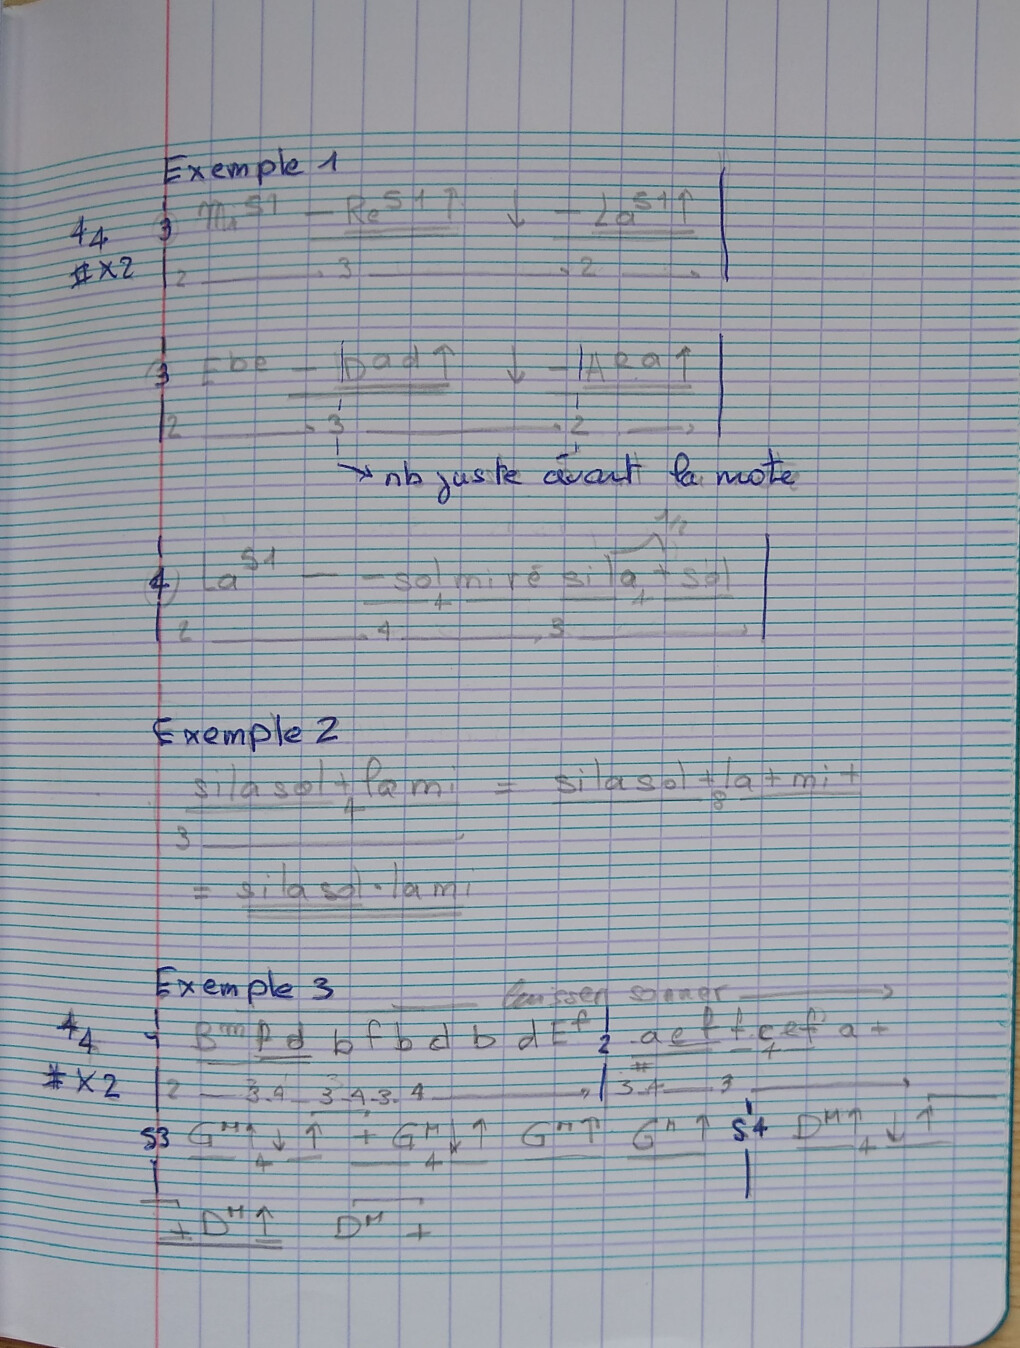 Exemple 1
4/4 3 Mi S1 - Re S1 ↑ ↓ - La S1 ↑
# x2 2 3 2
3 E be - D ad ↑ ↓ - A ea ↑
2 3 2
→ nb juste avant la note
1/2
4 La S1 - - sol mi ré si la + sol
4 4
2 4 3
Exemple 2
si la sol + fa mi = si la sol + la + mi +
4 8
3
= si la sol · la mi
Exemple 3
laisser sonner →
4/4 1 Bm f d b f b d b d E f 2 a e f f c e f a +
# 4
# x2 2 3 4 3 4 3 4 3 4 3
S3 G M ↑ ↓ ↑ + G M ↓ ↑ G M ↑ G M ↑ S4 D M ↑ ↓ ↑
4 4 4
+ D M ↑ D M +